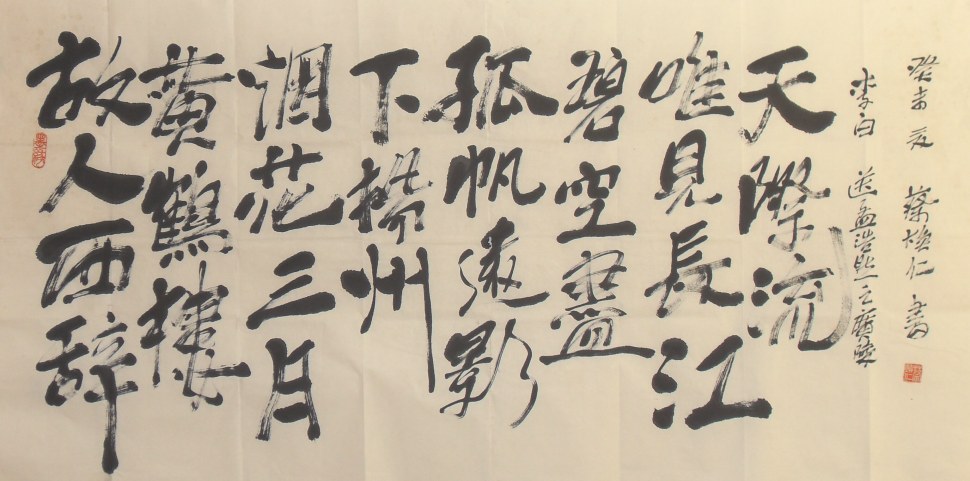 故人西辞
黄鶴樓
烟花三月
下揚州
孤帆遠影
碧空盡
唯見長江
天際流
李白 送孟浩然之廣陵
癸未夏 蔡 仁書